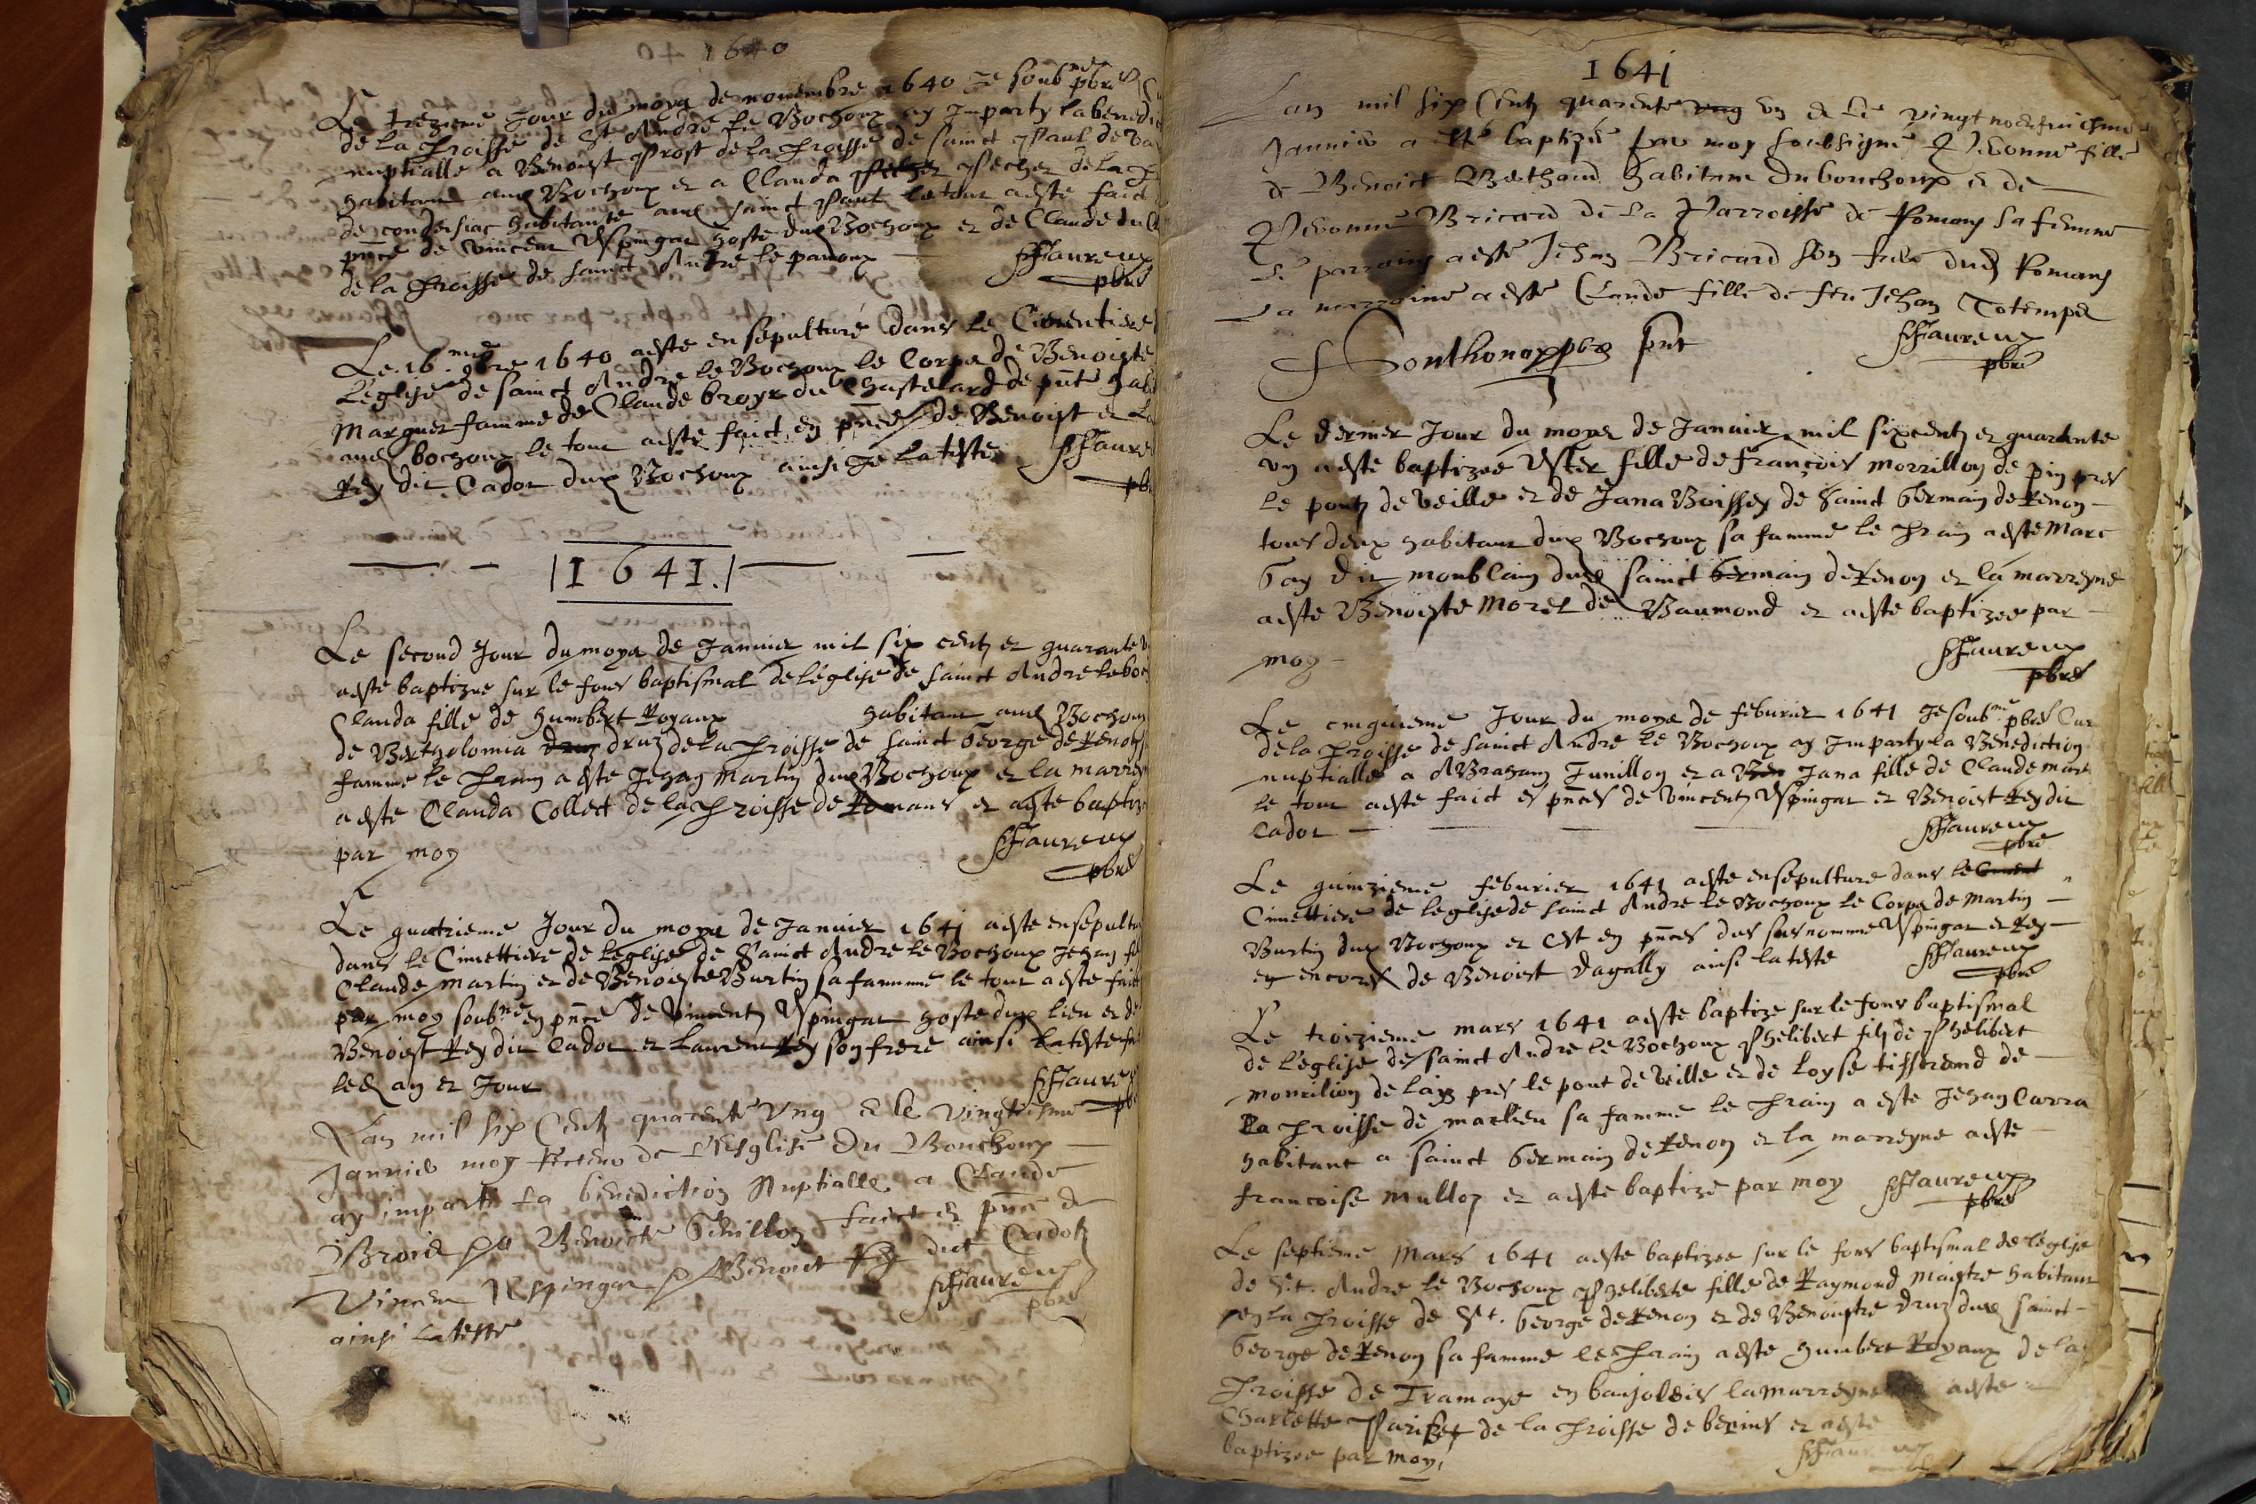 1640
Le trezieme Jour du moys de novembre 1640 Je soub.né pbre
de la proisse de St Andre le Bochoux ay Imparty la benedic
nuptialle a Benoist Prost de la proisse de sainct Paul de Va
habitant aud Bochoux et a Clauda Pecher de la p
de condeisiac habitante aud sainct Paul le tout a este faict
pnce de Vincent Uspingar hoste dud Bochoux et de Claude du
de la proisse de sainct Andre le panoux
FFaureux
pbre
Le 16.me 9bre 1640 a este ensepulture dans le Cimentiere
L'eglise de sainct Andre le Bochoux le Corps de Benoiste
Marguet famme de Claude broyr du Chastelard de pnt hab
aud bochoux le tout a este faict en pnces de Benoist et La
Rey dit Cador dud Bochoux ainsi Je L'ateste
FFaure
pb
1641.
Le second Jour du moys de Januier mil six cents et quarante v
a este baptizee sur le fons baptismal de l'eglise de sainct Andre le boc
Clauda fille de humbert Royaux habitant aud Bochoux
de Bertholomia druz de la proisse de sainct George de Renon s
famme le prain a este Jehan Martin dud Bochoux et la marreyn
a este Clauda Collect de la proisse de Romans et a este baptize
par moy
FFaureux
pbre
Le quatrieme Jour du moys de Januier 1641 a este ensepultu
dans le Cimettiere de l'eglise de Sainct Andre le Bochoux Jehan fil
Claude Martin et de Benoiste Burtin sa famme le tout a este faict
par moy soub.né en pnce de Vincent Uspingar hoste dud lieu et de
Benoist Rey dit Cador et Laurent Rey son frere ainsi L'ateste
led an et Jour
FFaure
pb
L'an mil six Centz quarente Ung & le vingtiesme
Januier moy de L'Esglise du Bouchoux
ay imparti la benediction Nuptialle a Claude
Broier Benoiste faict en pnce de
Vincent Uspingar Benoict Rey dict Cador
ainsi L'ateste
FFaureux
pbre
1641
L'an mil six Centz quarente un & le vingt
Januier a este baptizée par moy soubsigné Pevonne fille
de Benoict Berthaud habitant du bouchoux & de
Pevonne Bricard de La Parroisse de Romans sa femme
Le parrain a este Jehan Bricard son frere dud Romans
La marraine a este Claude fille de feu Jehan
Sonthonax pbre pnt
FFaureux
pbre
Le dernier Jour du moys de Januier mil six centz et quarante
un a este baptizee Ester fille de françois morrillon de pin pres
le pontz de veille et de Jana Boissey de Sainct Germain de Renon
tous deux habitant dud Bochoux sa famme le prain a este Marc
Gay dit monblain dud sainct Germain de Renon et la marreyne
a este Benoiste Morel de Baumond et a este baptizee par
moy
FFaureux
pbre
Le cinquieme Jour du moys de feburier 1641 Je soub.né pbre Cur
de la proisse de sainct Andre le Bochoux ay Imparty la Benediction
nuptialle a Abraham Junillon et a Jana fille de Claude mare
le tout a este faict es pnces de Vincent Uspingar et Benoist Rey dit
Cador
FFaureux
pbre
Le quinzieme feburier 1641 a este ensepulture dans le
Cimettiere de l'eglise de sainct Andre le Bochoux le Corps de Martin
Burtin dud Bochoux et est en pnces des susnomme Uspingar et Rey
et encores de Benoist Dagally ainsi L'ateste
FFaureux
pbre
Le troizieme mars 1641 a este baptize sur le fons baptismal
de l'eglise de sainct Andre le Bochoux Phelibert filz de Phelibert
de Laiz pres le pont de veille et de Loyse tisserand de
La proisse de marlieu sa famme le prain a este Jehan Carra
habitant a sainct Germain de Renon et la marreyne a este
francoise Mulloz et a este baptize par moy
FFaureux
pbre
Le septieme Mars 1641 a este baptizee sur le fons baptismal de l'eglise
de St. Andre le Bochoux Pheliberte fille de Raymond Maistre habitant
en la proisse de St. George de Renon et de Benoiste druz dud sainct
George de Renon sa famme le prain a este humbert Royaux de la
proisse de Tramaye en baujolois la marreyne a este
Charlette Parizet de la proisse de berins et a este
baptizee par moy,
FFaureux